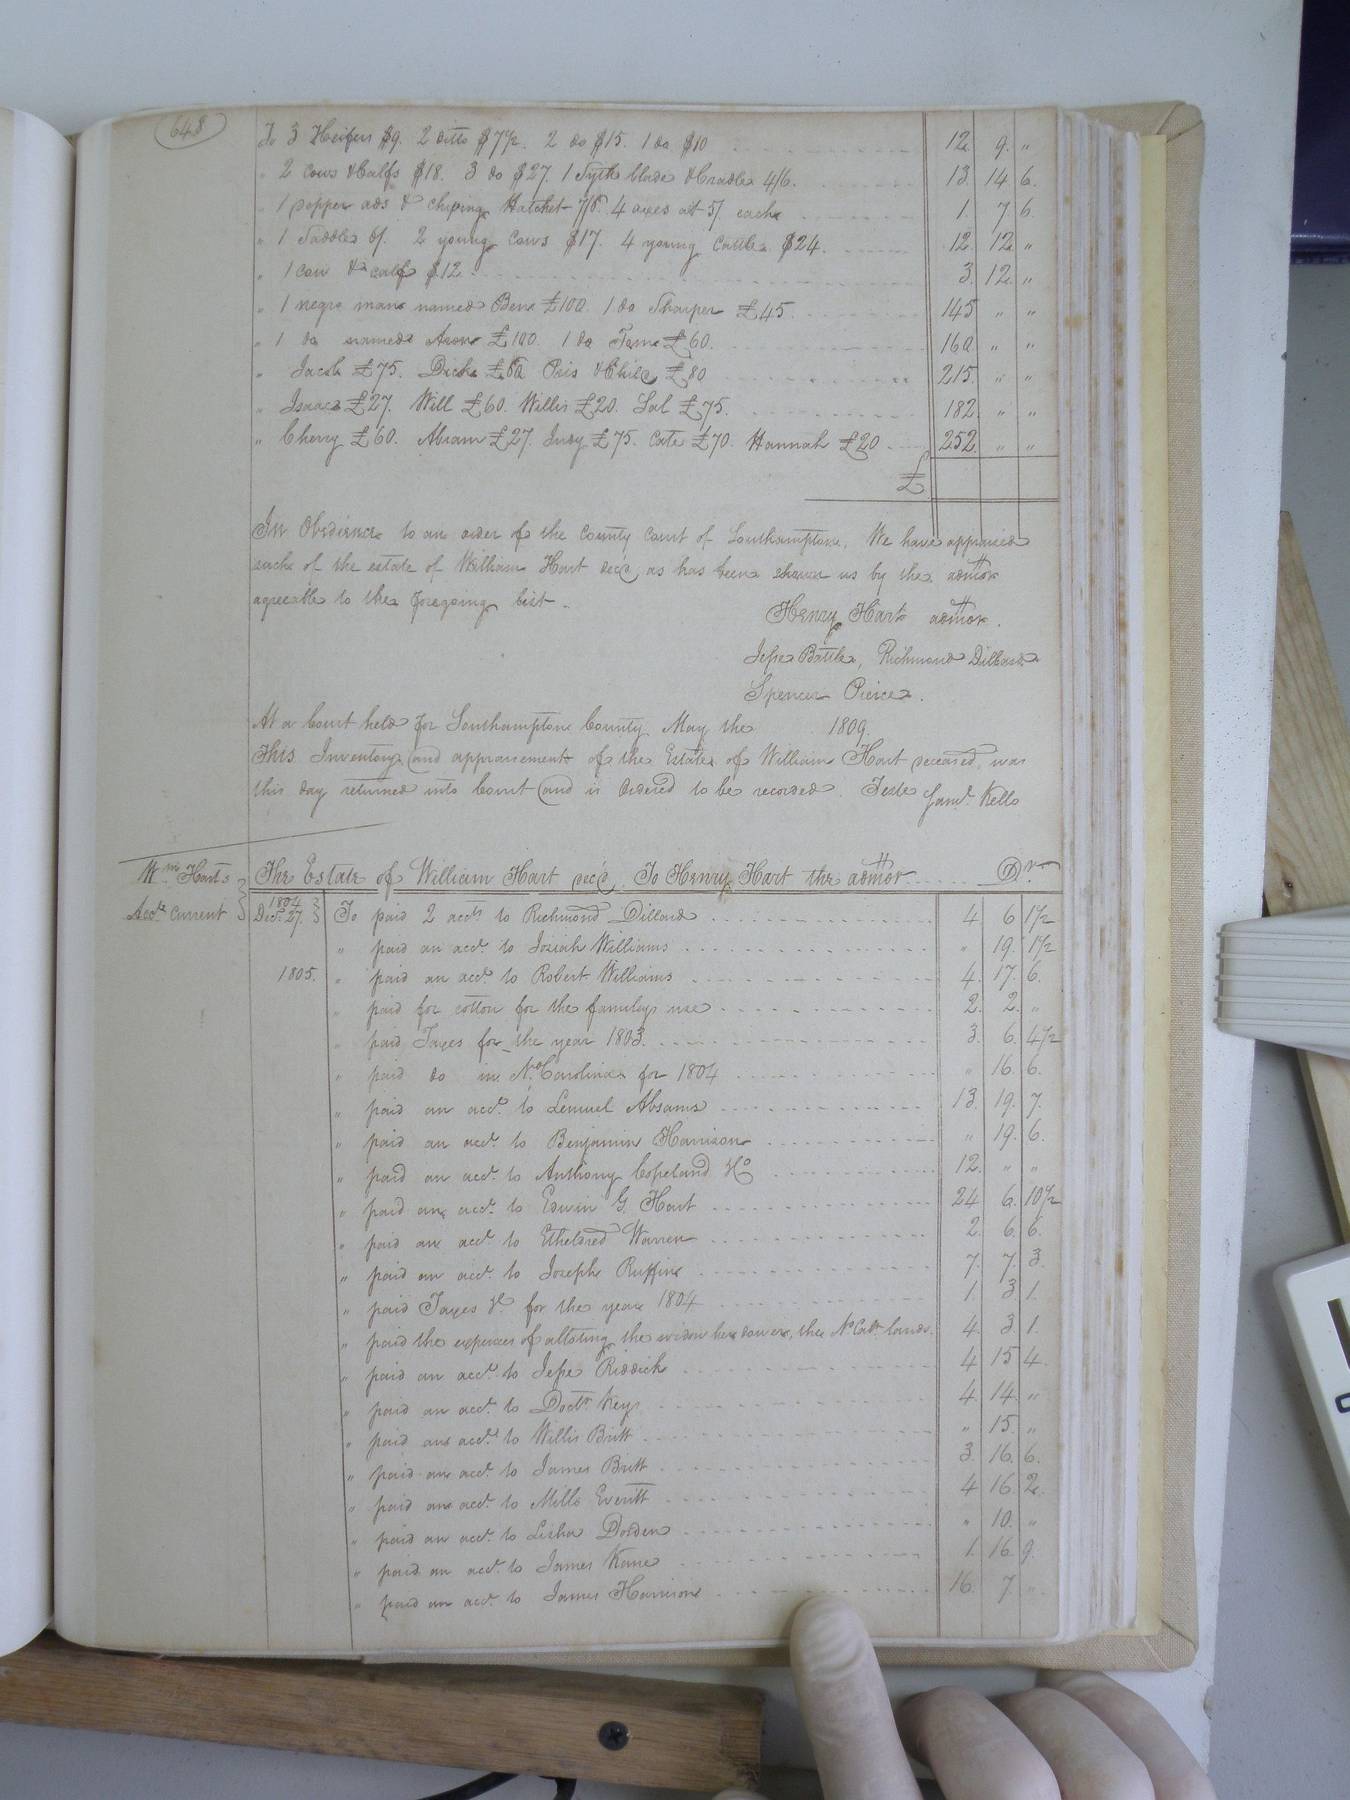 648
To 3 Heifers $9. 2 ditto $7 1/2. 2 do $15. 1 do $10 12. 9. "
" 2 cows & Calfs $18. 3 do $27. 1 Syth blade & Cradle 4/6. 13. 14. 6.
" 1 adds & Hatchet 7/6. 4 axes at 5/ each 1. 7. 6.
" 1 Saddle 6/. 2 young cows $17. 4 young Cattle $24. 12. 12. "
" 1 cow & calf $12. 3. 12. "
" 1 negro man named Ben £100. 1 do Sharper £45. 145 " "
" 1 do named Aron £100. 1 do Tom £60. 160. " "
" Jacob £75. Dick £60 & Child £80 215. " "
" Isaac £27. Will £60. Willis £20. Sal £75. 182. " "
" Cherry £60. Abram £27. Judy £75. Cate £70. Hannah £20 252. " "
£
In Obedience to an order of the County Court of Southampton, We have appraised
such of the estate of William Hart decd. as has been shewn us by the admor
agreeable to the foregoing list.
Henry Hart admor.
Jesse Battle, Richmond Dillard
Spencer Pierce.
At a Court held for Southampton County May the 1809.
This Inventory and appraisement of the Estate of William Hart deceased was
this day returned into Court and is Ordered to be recorded. Teste Saml. Kello
Wm. Hart's
Acct. Current
The Estate of William Hart decd. To Henry Hart the admor Dr.
1804
Decr. 27. To paid 2 accts to Richmond Dillard 4 6 1 1/2
" paid an acct. to Josiah Williams " 19. 1 1/2
1805. " paid an acct. to Robert Williams 4. 17. 6.
" paid for cotton for the familys use 2. 2. "
" paid Taxes for the year 1803. 3. 6. 4 1/2
" paid do in No. Carolina for 1804 " 16. 6.
" paid an acct. to Lemuel Abrams 13. 19. 7.
" paid an acct. to Benjamin Harrison " 19. 6.
" paid an acct. to Anthony Copeland & Co 12. " "
" paid an acct. to Edwin G. Hart 24 6. 10 1/2
" paid an acct. to Etheldred Warren 2. 6. 6.
" paid an acct. to Joseph Ruffin 7. 7. 3.
" paid Taxes &c. for the year 1804 1. 3 1.
" paid the expences of alloting the widow her dower, the No Cara. lands. 4. 3 1.
" paid an acct. to Jesse Riddick 4 15 4.
" paid an acct. to Doctr. Keys 4 14. "
" paid an acct. to Willis Britt " 15. "
" paid an acct. to James Britt 3. 16. 6.
" paid an acct. to Mills Everitt 4 16. 2.
" paid an acct. to Lisha Dorden " 10. "
" paid an acct. to James Kane 1. 16 9.
" paid an acct. to James Harrison 16. 7 "